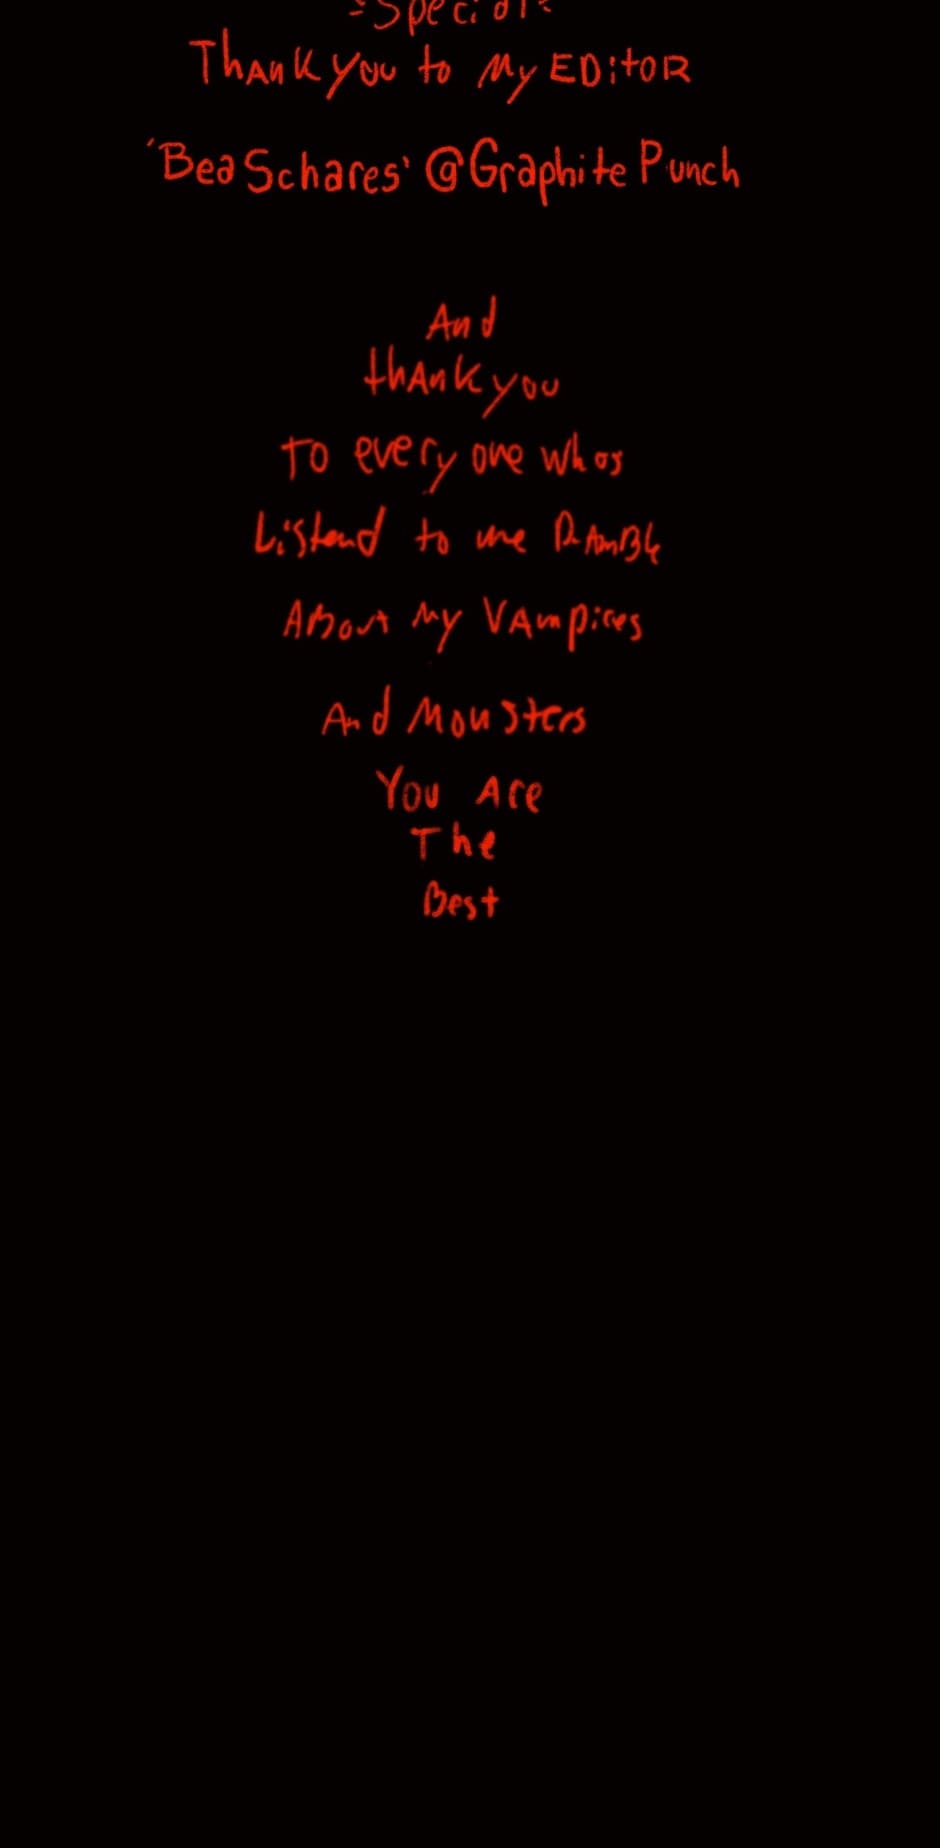 -Special-
Thank you to My EDitoR
'Bea Schares' @Graphite Punch
And
thank you
To every one whos
Listend to me RAmBle
About My VAmpires
And Monsters
You Are
The
Best